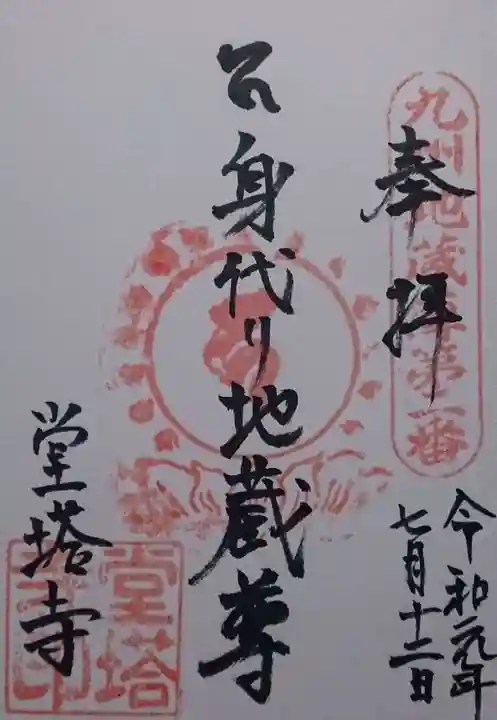 奉拝
九州地蔵尊第二番
令和元年
七月十二日
身代り地蔵尊
堂塔寺
堂塔
寺印